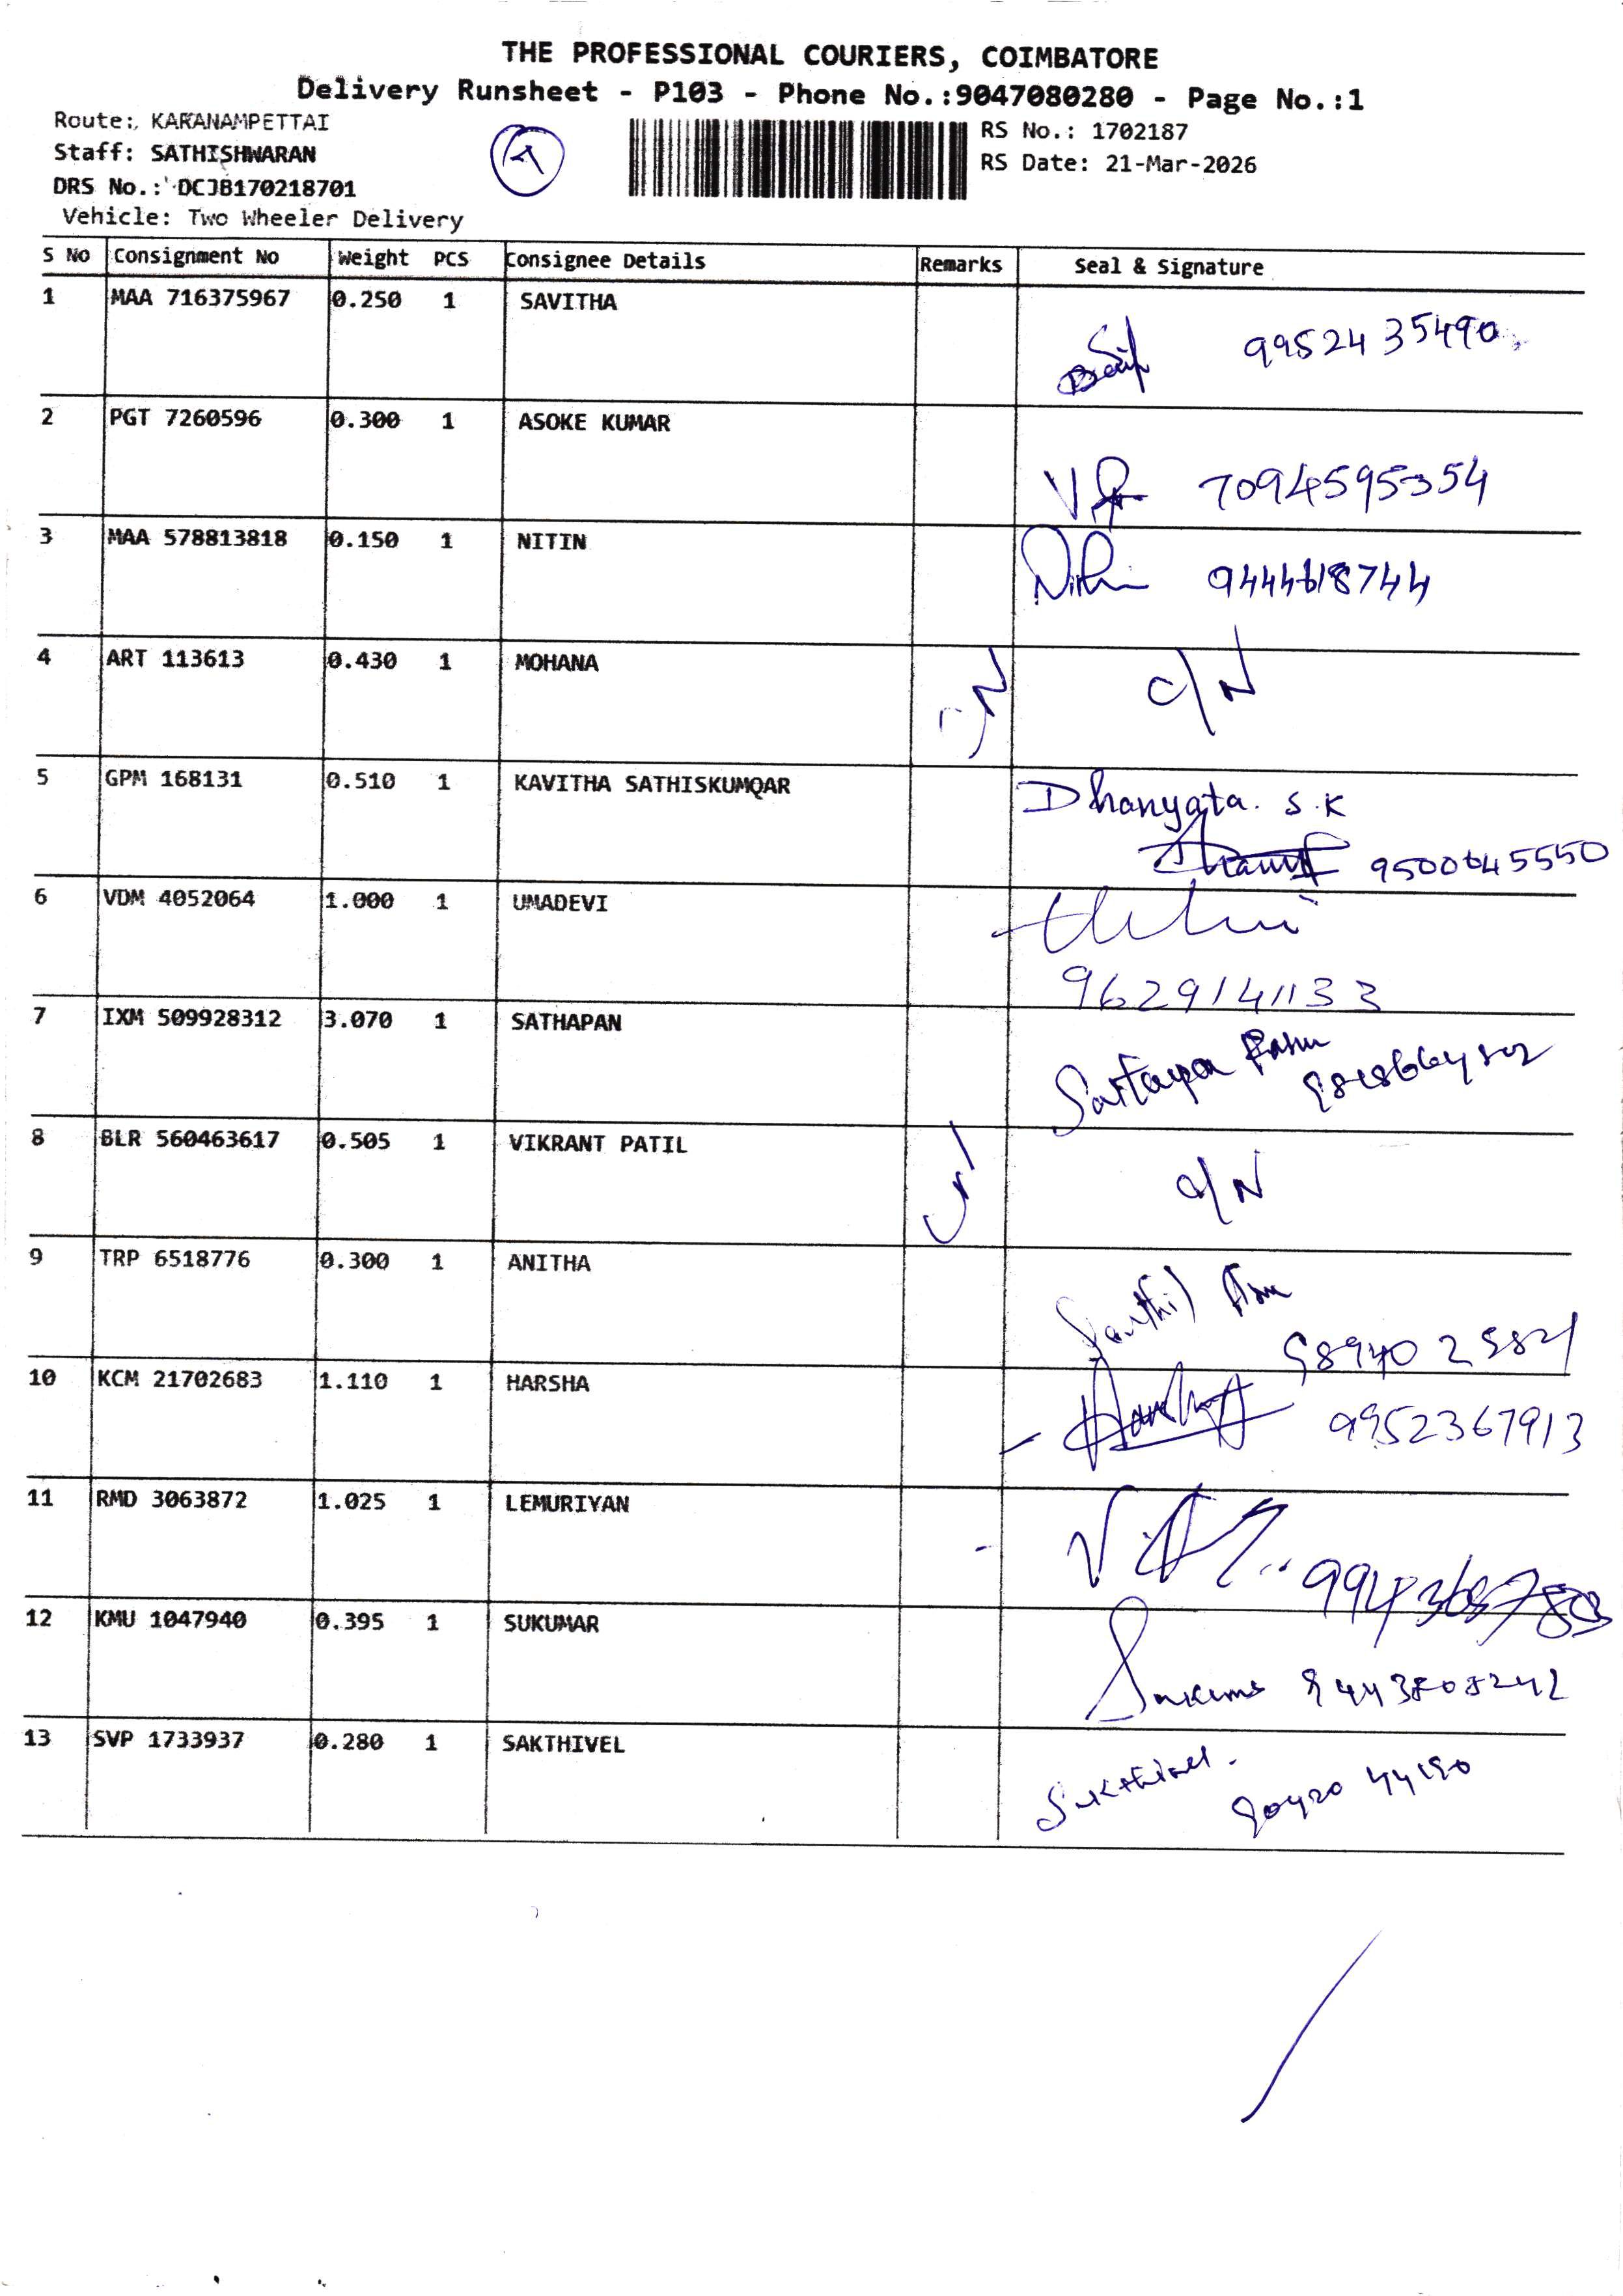 THE PROFESSIONAL COURIERS, COIMBATORE
Delivery Runsheet - P103 - Phone No.:9047080280 - Page No.:1
Route: KARANAMPETTAI
RS No.: 1702187
Staff: SATHISHWARAN
RS Date: 21-Mar-2026
DRS No.: DCJB170218701
Vehicle: Two Wheeler Delivery
S No Consignment No Weight PCS Consignee Details Remarks Seal & Signature
1 MAA 716375967 0.250 1 SAVITHA
9952435490
2 PGT 7260596 0.300 1 ASOKE KUMAR
7094595354
3 MAA 578813818 0.150 1 NITIN
9444618744
4 ART 113613 0.430 1 MOHANA
C/N
5 GPM 168131 0.510 1 KAVITHA SATHISKUMQAR
Dhanyata. S.K
6 VDM 4052064 1.000 1 UMADEVI
9629141133
7 IXM 509928312 3.070 1 SATHAPAN
8 BLR 560463617 0.505 1 VIKRANT PATIL
C/N
9 TRP 6518776 0.300 1 ANITHA
10 KCM 21702683 1.110 1 HARSHA
9952367913
11 RMD 3063872 1.025 1 LEMURIYAN
12 KMU 1047940 0.395 1 SUKUMAR
13 SVP 1733937 0.280 1 SAKTHIVEL
Sakthivel.